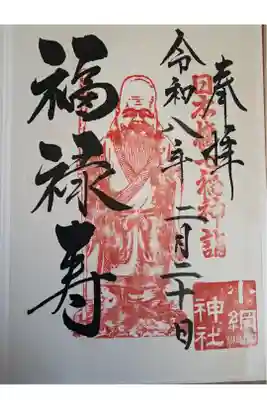 奉拝
日本橋七福神詣
令和八年 二月二十日
福禄寿
小網
神社